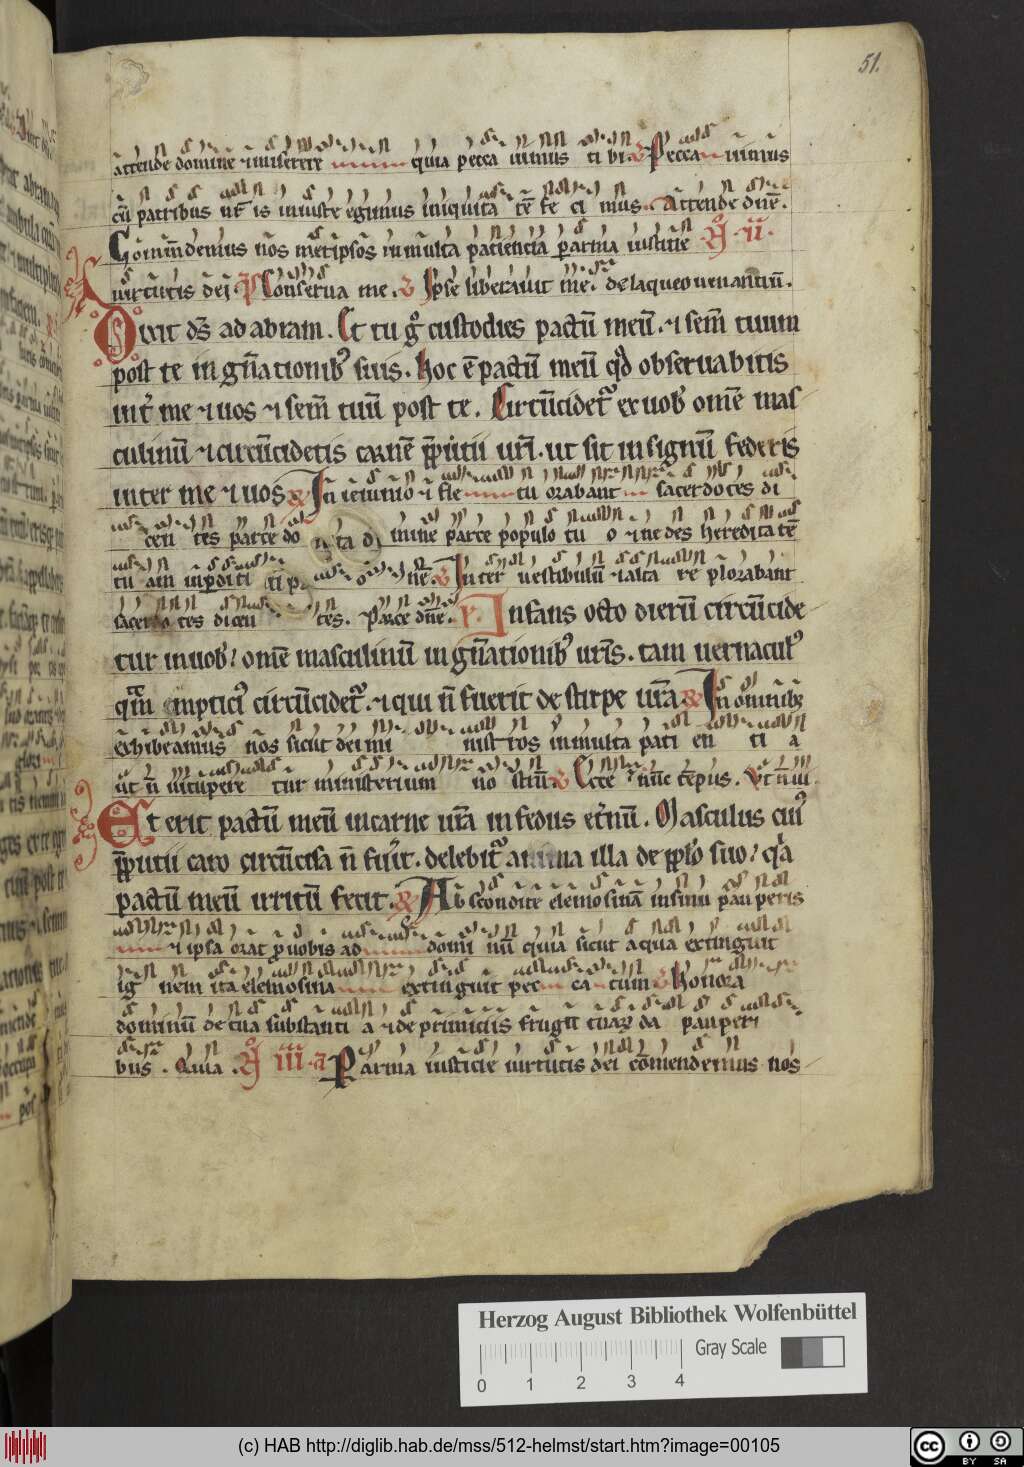 51.
attende domine ⁊ miserere quia pecca uimus ti bi Peccauimus
cū patribus nr̄is iniuste egimus iniquita tē fe ci mus. Attende dn̄e.
Cōmmendemus nos metipsos in multa patiencia p arma iusticie ii.
uirtutis dei Conserua me. Ipse liberauit me. de laqueo uenantiū.
Dixit ds̄ ad abram. Et tu gͦ custodies pactū meū. ⁊ sem̄ tuum
post te in gn̄ationibꝰ suis. hoc ē pactū meū qd̄ obseruabitis
int̄ me ⁊ uos ⁊ sem̄ tuū post te. Circūcidet᷑ ex uob̄ om̄e mas
culinū ⁊ circūcidetis carnē p̄putii ur̄i. ut sit in signū federis
inter me ⁊ uos In ieiunio ⁊ fle tu orabant sacerdotes di
cen tes parce do mine parce populo tu o ⁊ ne des heredita tē
tu am in pditi nē. Inter uestibulū ⁊ alta re plorabant
sacerdo tes dicen tes. Parce dn̄e. Infans octo dierū circūcide
tur in uob̄ om̄e masculinū in gn̄ationibꝰ ur̄is. tam uernaculꝰ
qm̄ empticiꝰ circūcidet᷑. ⁊ qui n̄ fuerit de stirpe ur̄a In omnibꝫ
exhibeamus nos sicut dei mi nist ros in multa pati en ti a
ut n̄ uitupere tur ministerium no strū Ecce nūc tēpus. Vt n̄ ui
Et erit pactū meū in carne ur̄a in fedus et̄nū. Masculus cuiꝰ
p̄putii caro circūcisa n̄ fūit. delebit᷑ anima illa de pplo suo qa
pactū meū irritū fecit. Abscondite elemosinā in sinu pauperis
⁊ ipsa orat p uobis ad domi nū quia sicut aqua extinguit
ig nem ita elemosina extinguit pec ca tum Honora
dominū de tua substanti a ⁊ de primiciis frugū tuarꝝ da pauperi
bus. Quia. iii. a Parma iusticie uirtutis dei cōmendemus nos
Herzog August Bibliothek Wolfenbüttel
Gray Scale
0 1 2 3 4
(c) HAB http://diglib.hab.de/mss/512-helmst/start.htm?image=00105
cc BY SA